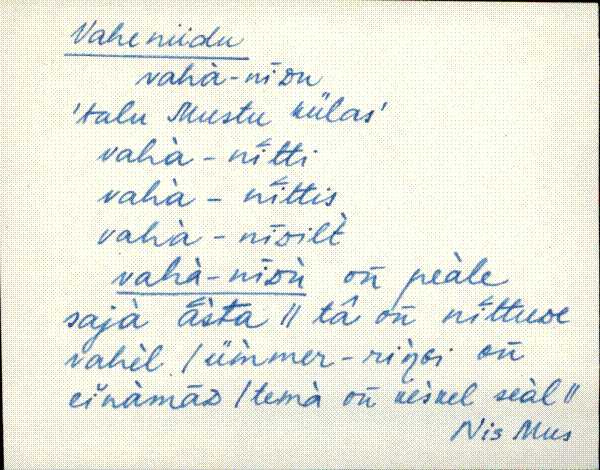 Vaheniidu
vahà-nīᴅu
'talu Mustu külas'
vahà - nîtti
vahà - nîttis
vahà - nīᴅilt̀
vahà-nīᴅù on̄ peàle
sajà âsta || tâ on̄ nîttuᴅe
vahèl / üm̀mer-riŋ̀gi on̄
eĭnàmāᴅ / temà on̄ kèskel seàl ||
Nis Mus